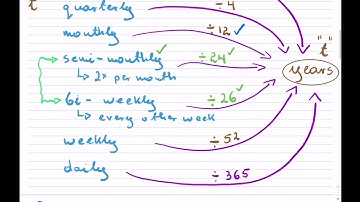 t quarterly ÷ 4
monthly ÷ 12 ✓
"t"
semi-monthly ✓ ÷ 24 ✓
↳ 2x per month
years
bi-weekly ÷ 26 ✓
↳ every other week
weekly ÷ 52
daily ÷ 365